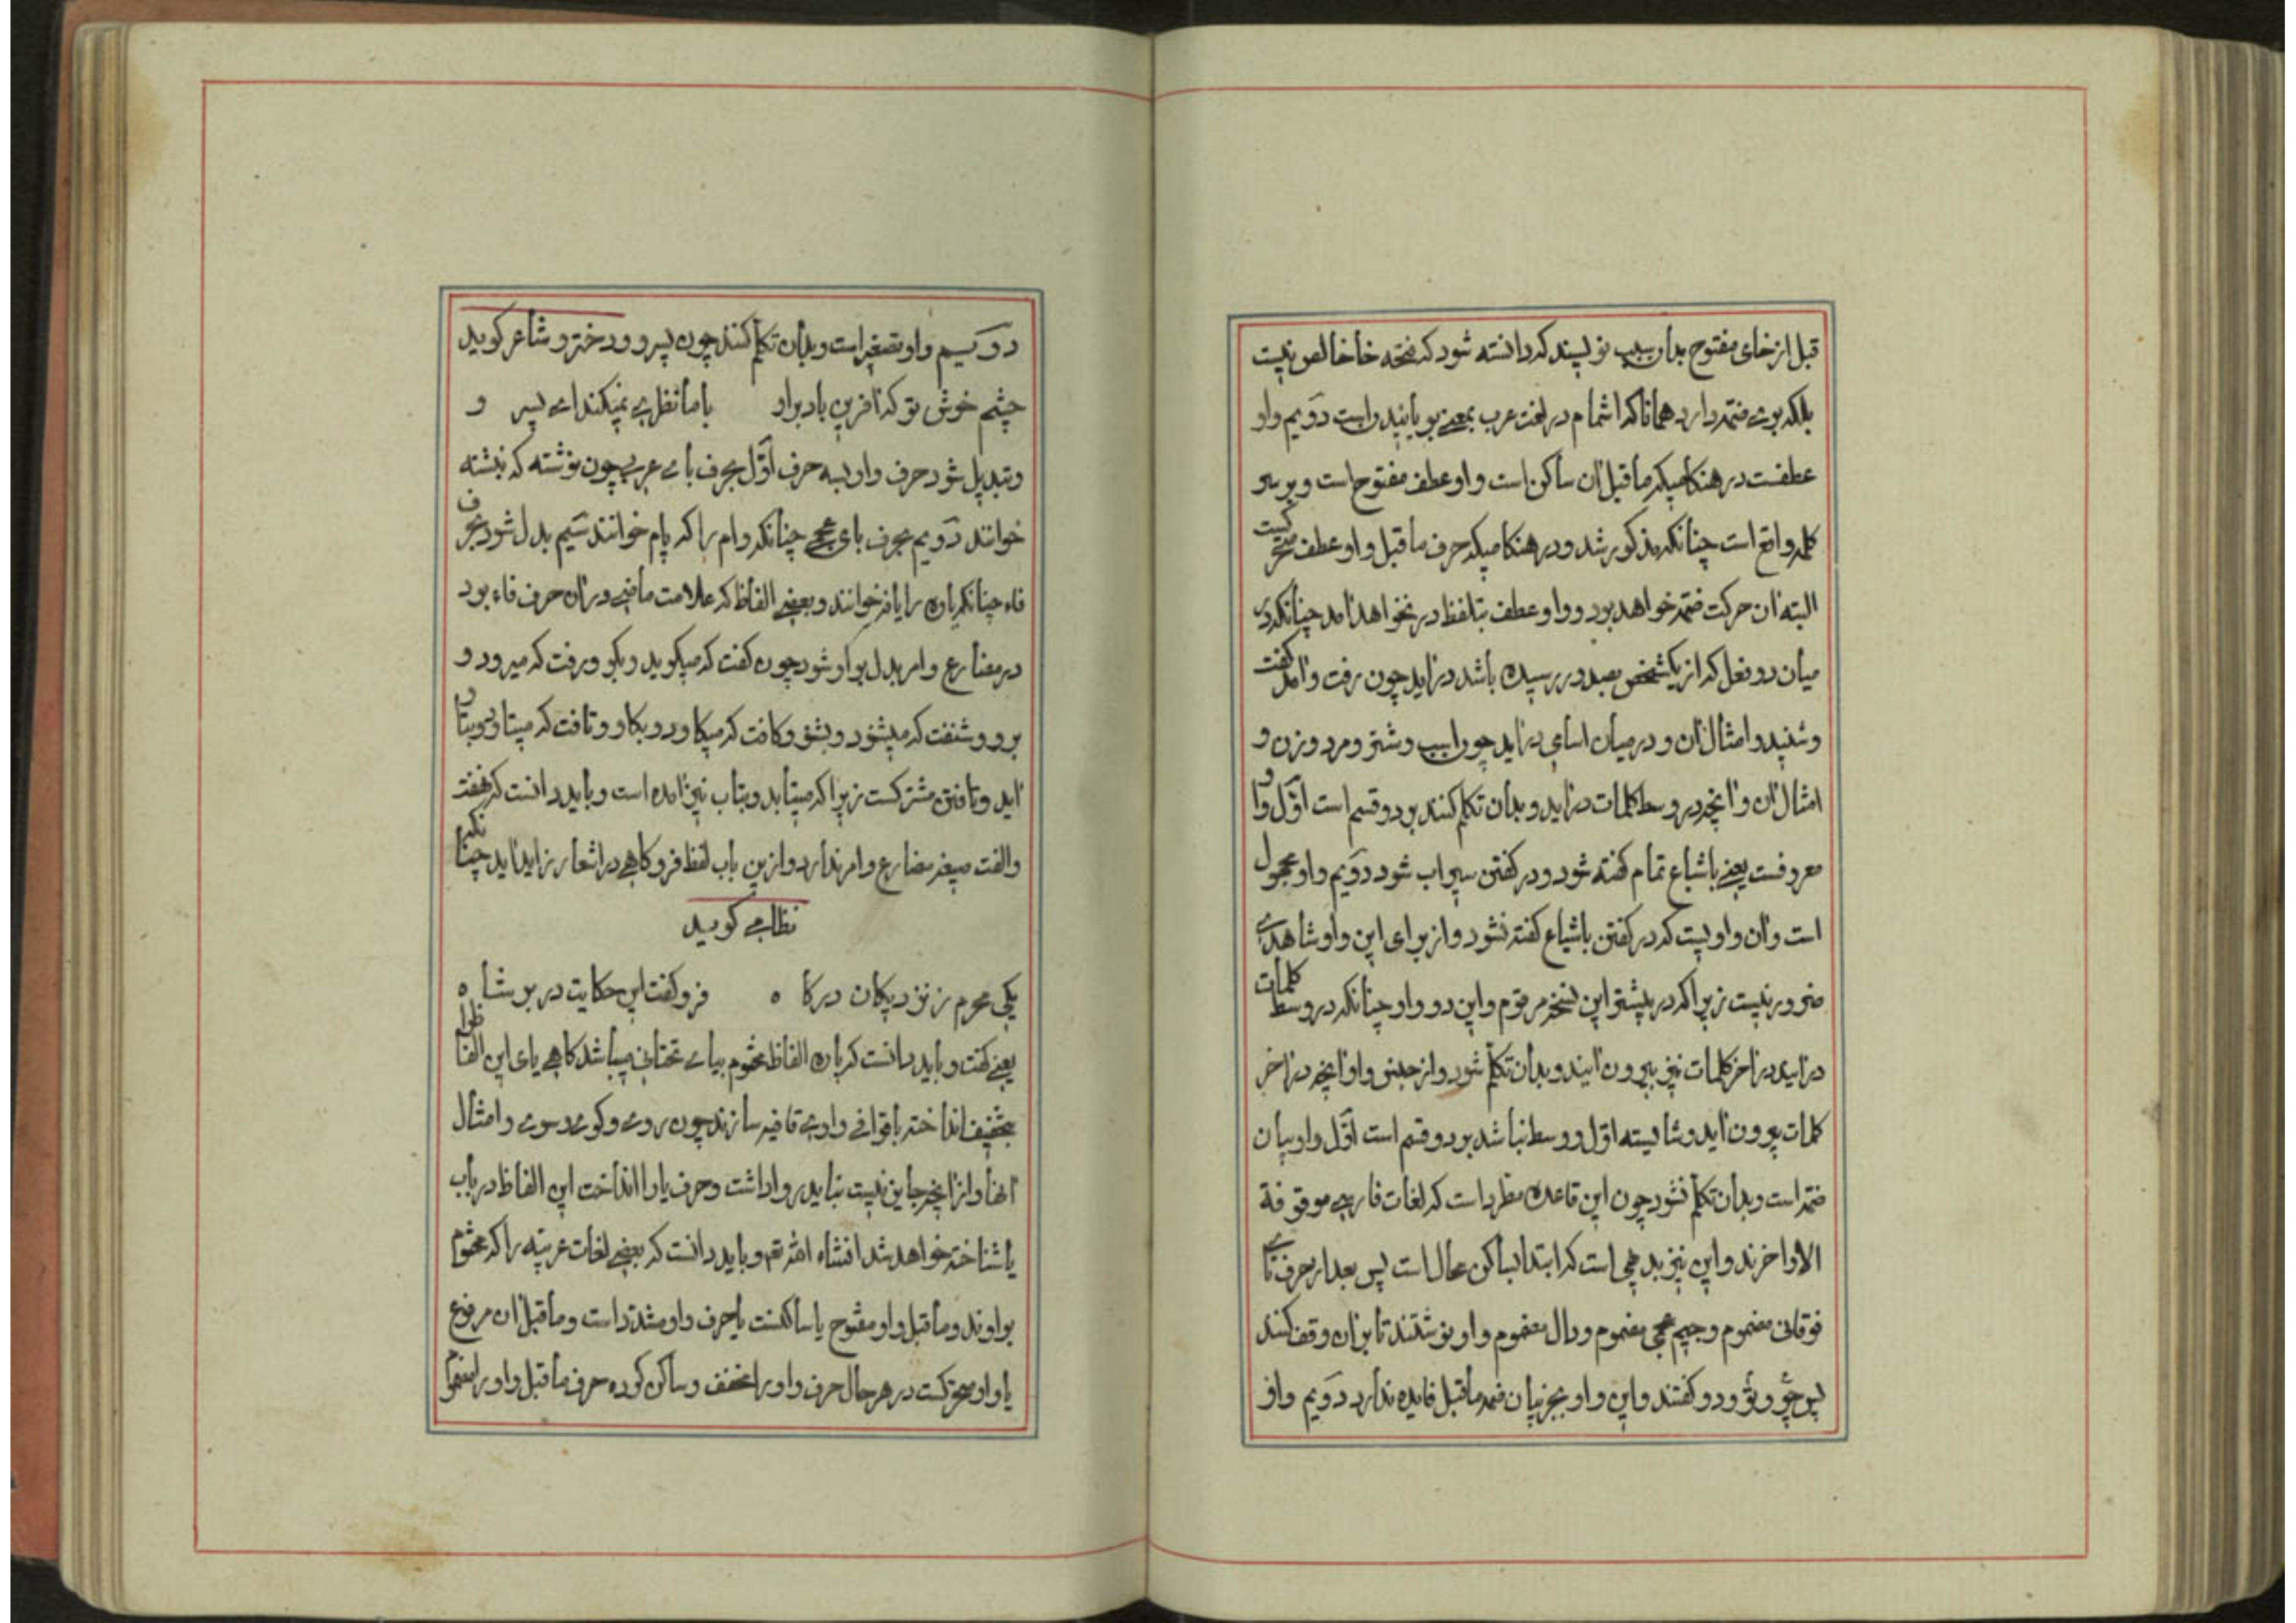 قبل از خای مفتوح بدان سبب نویسند که دانسته شود که فتحه خا خالص نیست
بلکه بوی ضمّه دارد همانا که اشمام در لغت عرب بمعنی بویانیدن است دَویم واو
عطفست در هنگامیکه ماقبل ان ساکن است و او عطف مفتوح است و بر سر
کلمه واقع است چنانکه مذکور شد و در هنگامیکه حرف ماقبل واو عطف متحرکست
البته ان حرکت ضمّه خواهد بود و واو عطف بتلفظ در نخواهد امد چنانکه در
میان دو فعل که از یکشخص بصدور رسیده باشد در اید چون رفت و امد کفت
و شنید و امثال ان و در میان اسامی در اید چون اسب و شتر و مرد و زن و
امثال ان و انچه در وسط کلمات در اید و بدان تکلم کنند بر دو قسم است اوّل واو
معروفست یعنی باشباع تمام کفته شود و در کفتن سیراب شود دَویم واو مجهول
است و ان واویست که در کفتن باشباع کفته نشود و از برای این واو شاهدی
ضرور نیست زیرا که در بیشتر این نسخه مرقوم و این دو واو چنانکه در وسط کلمات
در اید در اخر کلمات نیز بیرون ایند و بدان تکلم شود و از جنس واو انچه در اخر
کلمات بیرون اید و شایسته اوّل و وسط نباشد بر دو قسم است اوّل واو بیان
ضمّه است و بدان تکلم نشود چون این قاعده مطرد است که لغات فارسی موقوفة
الاواخرند و این نیز بدیهی است که ابتدا بساکن محال است پس بعد از حرف تای
فوقانی مضموم و جیم عجمی مضموم و دال مضموم واو نوشتند تا بر ان وقف کنند
پس چو و تو و دو کفتند و این واو بجز بیان ضمه ماقبل فایده ندارد دَویم واو
دوَ سیم واو تصغیر است و بدان تکلم کنند چون پسرو و دخترو شاعر کوید
چشم خوش تو که افرین باد براو با ما نظری نمیکند ای پسر و
و تبدیل شود حرف واو بسه حرف اوّل بحرف بای عربی چون نوشته که نبشته
خوانند دَویم بحرف بای عجمی چنانکه وام را که پام خوانند سَیم بدل شود بحرف
فاء چنانکه یاوه را یافه خوانند و بعضی الفاظ که علامت ماضی در ان حرف فاء بود
در مضارع و امر بدل بواو شود چون کفت که میکوید و بکو و رفت که میرود و
برو و شنفت که میشنود و بشنو و کافت که میکاود و بکاو و تافت که میتاود و بتاو
اید و تافتن مشترکست زیرا که میتابد و بتاب نیز امده است و باید دانست که خفت
والفت صیغه مضارع و امر ندارد و ازین باب لفظ فرو کاهی در اشعار زاید اید چنانکه
نظامی کوید
یکی محرم ز نزدیکان درکاه فرو کفت این حکایت در بر شاه
یعنی کفت و باید دانست که پاره الفاظ مختوم بیای تحتانی میباشد کاهی یای این الفاظ را
بتخفیف انداخته با قوافی واوی قافیه سازند چون روی و کوی و سوی و امثال
انها و از انچه جایز نیست نباید روا داشت و حرف یا را انداخت این الفاظ در باب
یا شناخته خواهد شد انشاء الله تعم و باید دانست که بعضی لغات عربیّه را که مختوم
بواوند و ماقبل واو مفتوح یا ساکنست یا حرف واو مشدّد است و ماقبل ان مرفوع
یا واو متحرکست در هر حال حرف واو را مخفف و ساکن کرده حرف ماقبل واو را مضموم